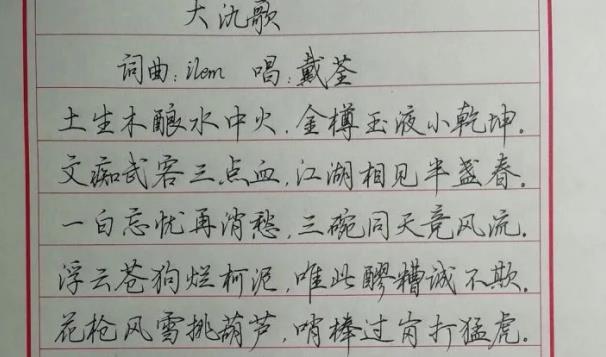 大氿歌
词曲:ilem 唱:戴荃
土生木酿水中火,金樽玉液小乾坤.
文痴武客三点血,江湖相见半盏春.
一白忘忧再消愁,三碗同天竞风流.
浮云苍狗烂柯泥,唯此醪糟诚不欺.
花枪风雪挑葫芦,哨棒过岗打猛虎.